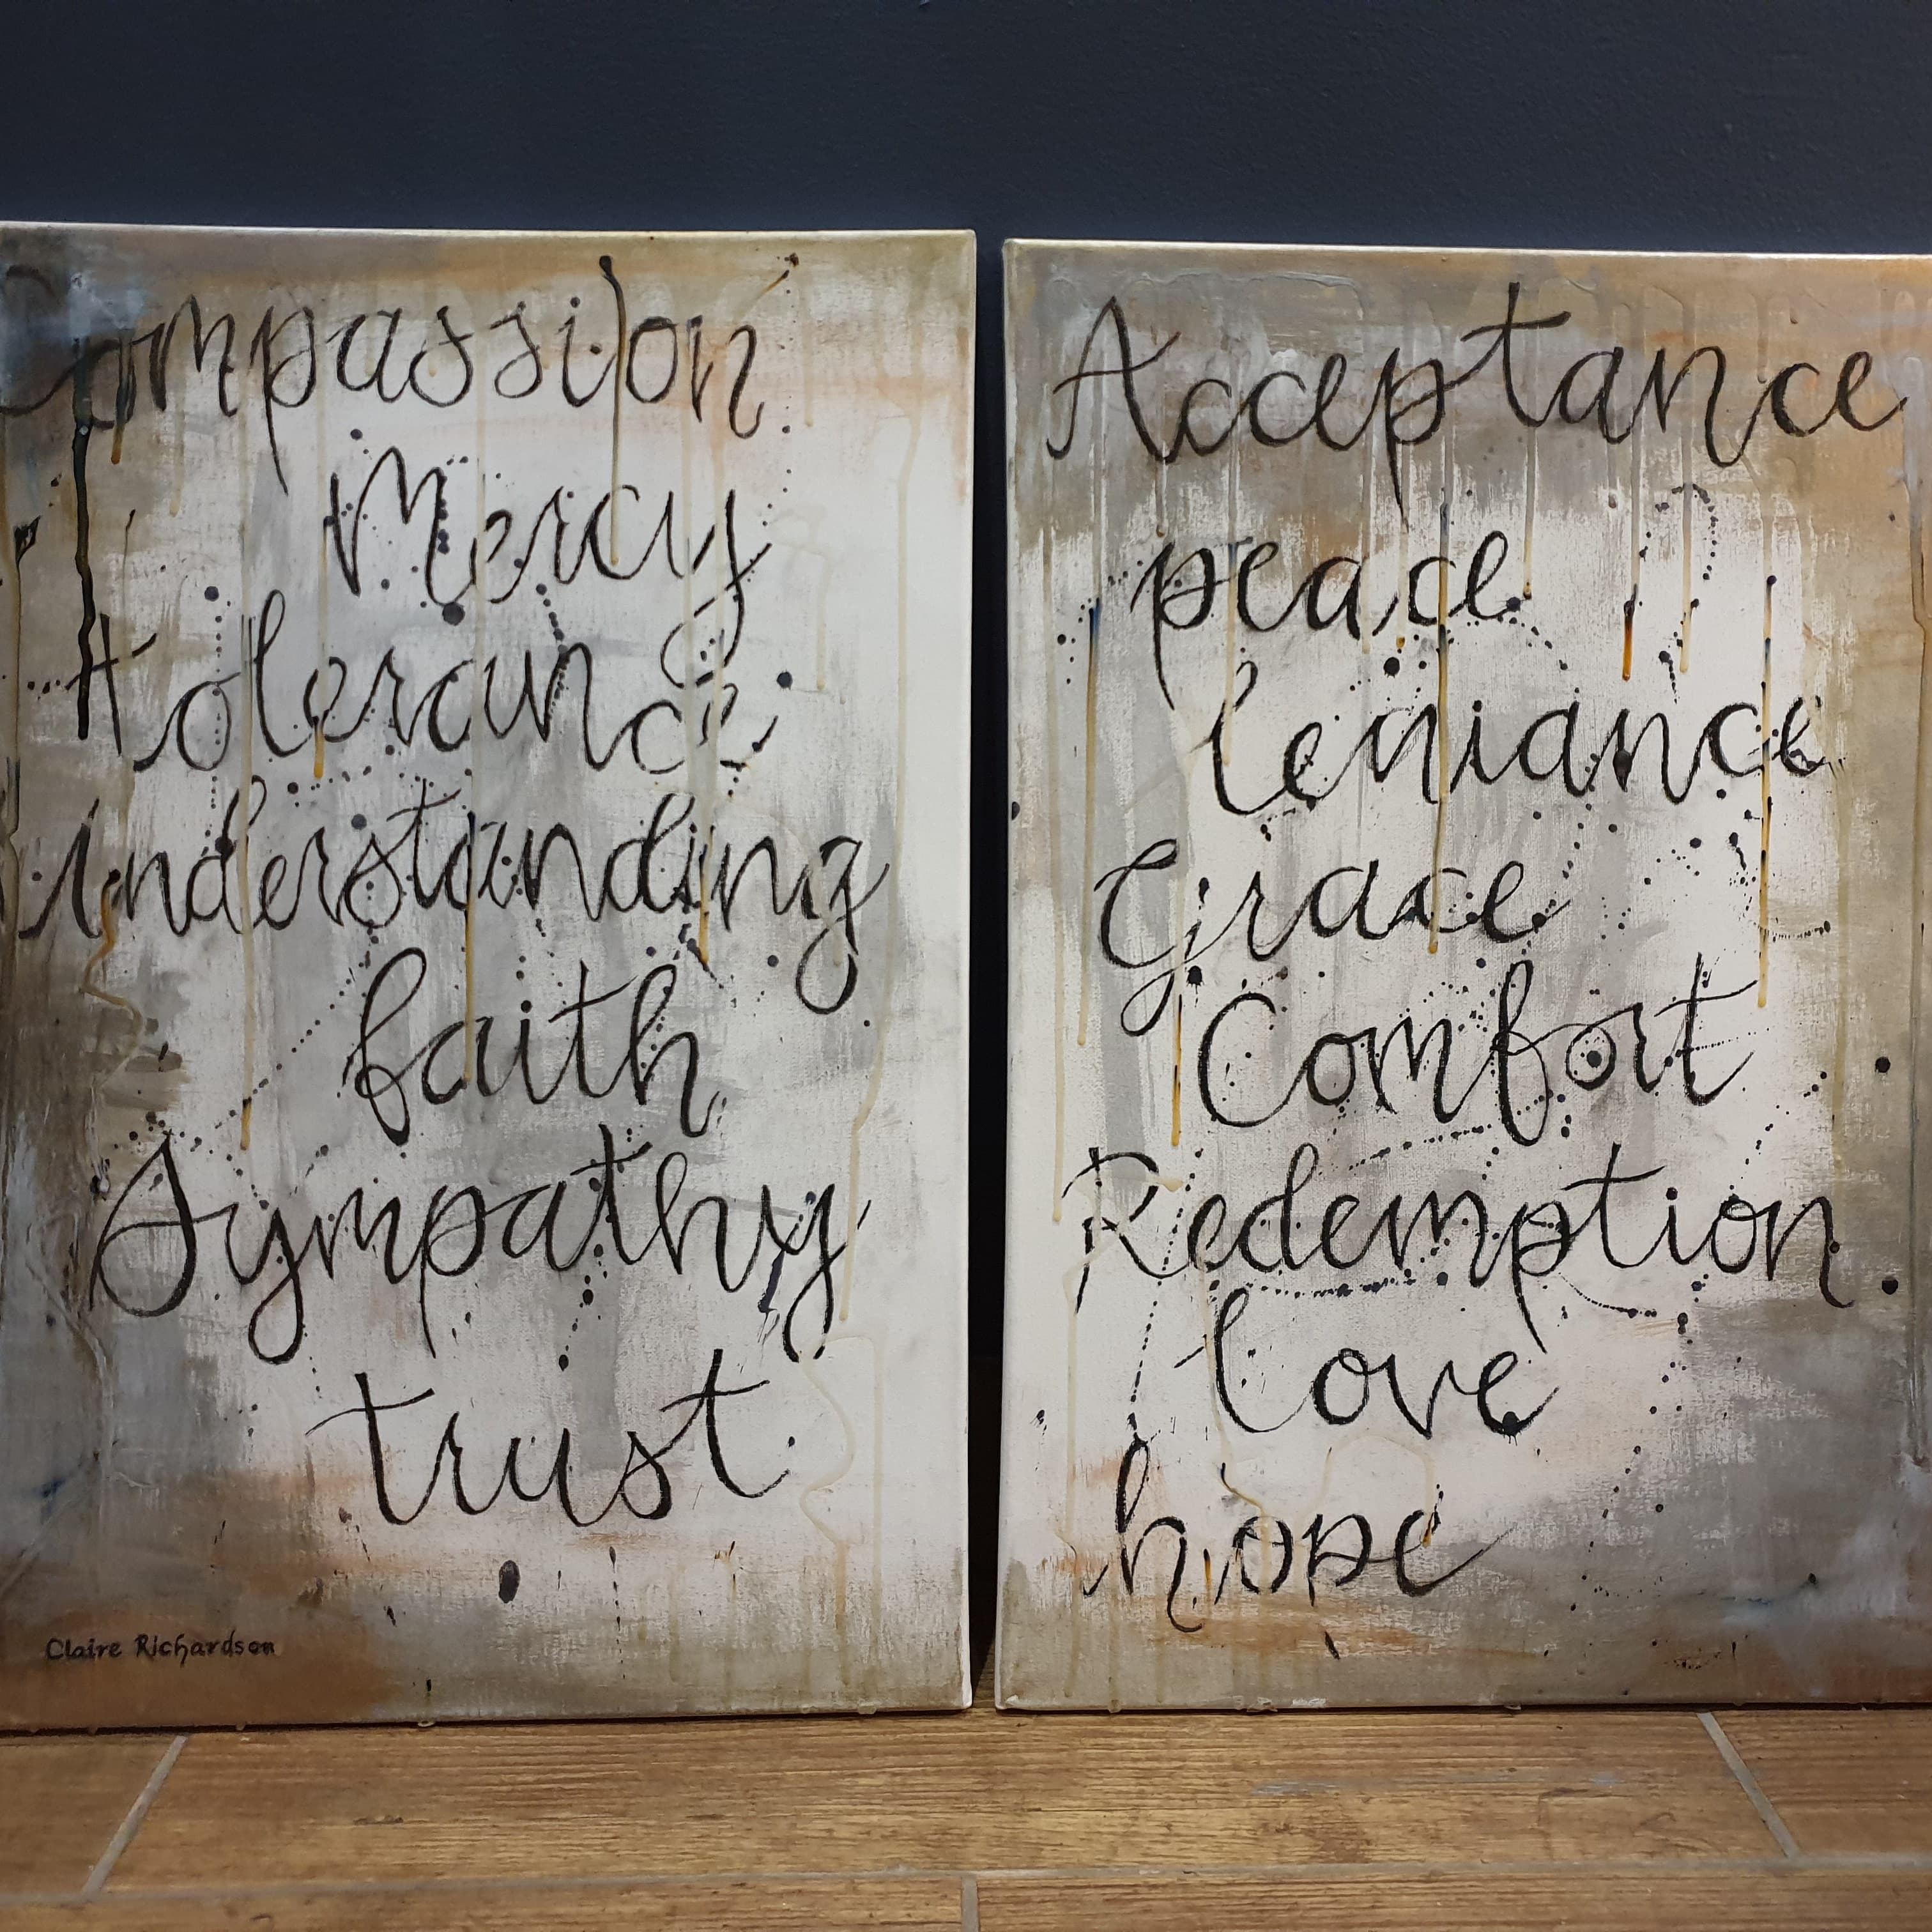 Compassion
Mercy
tolerance
understanding
faith
Sympathy
trust
Claire Richardson
Acceptance
peace
leniance
Grace
Comfort
Redemption
love
hope